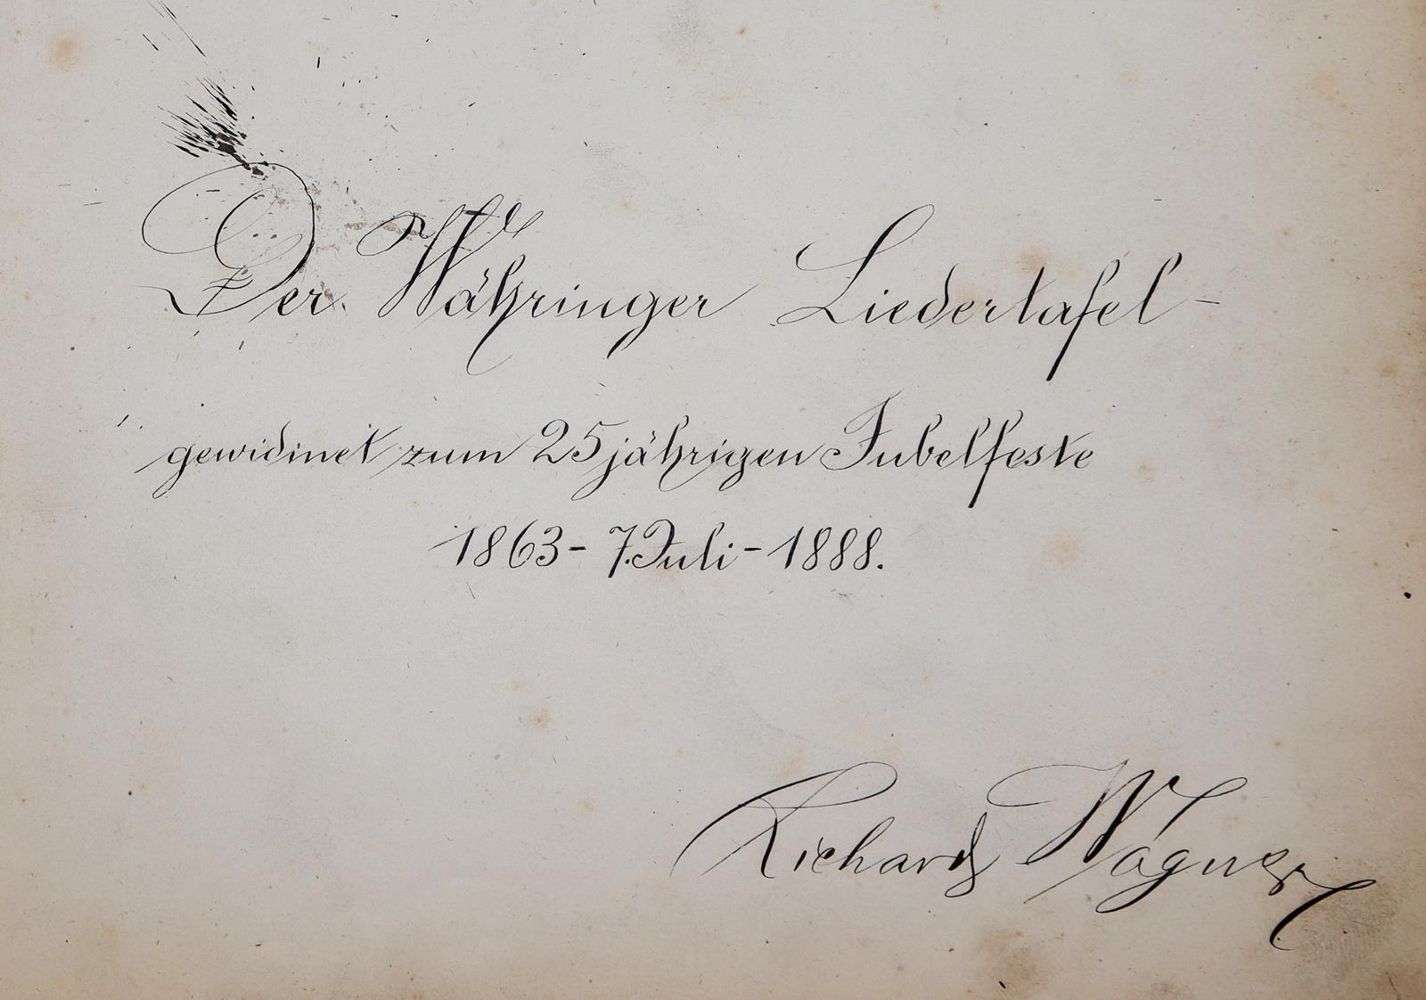 Der Währinger Liedertafel -
gewidmet zum 25 jährigen Jubelfeste
1863 - 7. Juli - 1888.
Richard Wagner